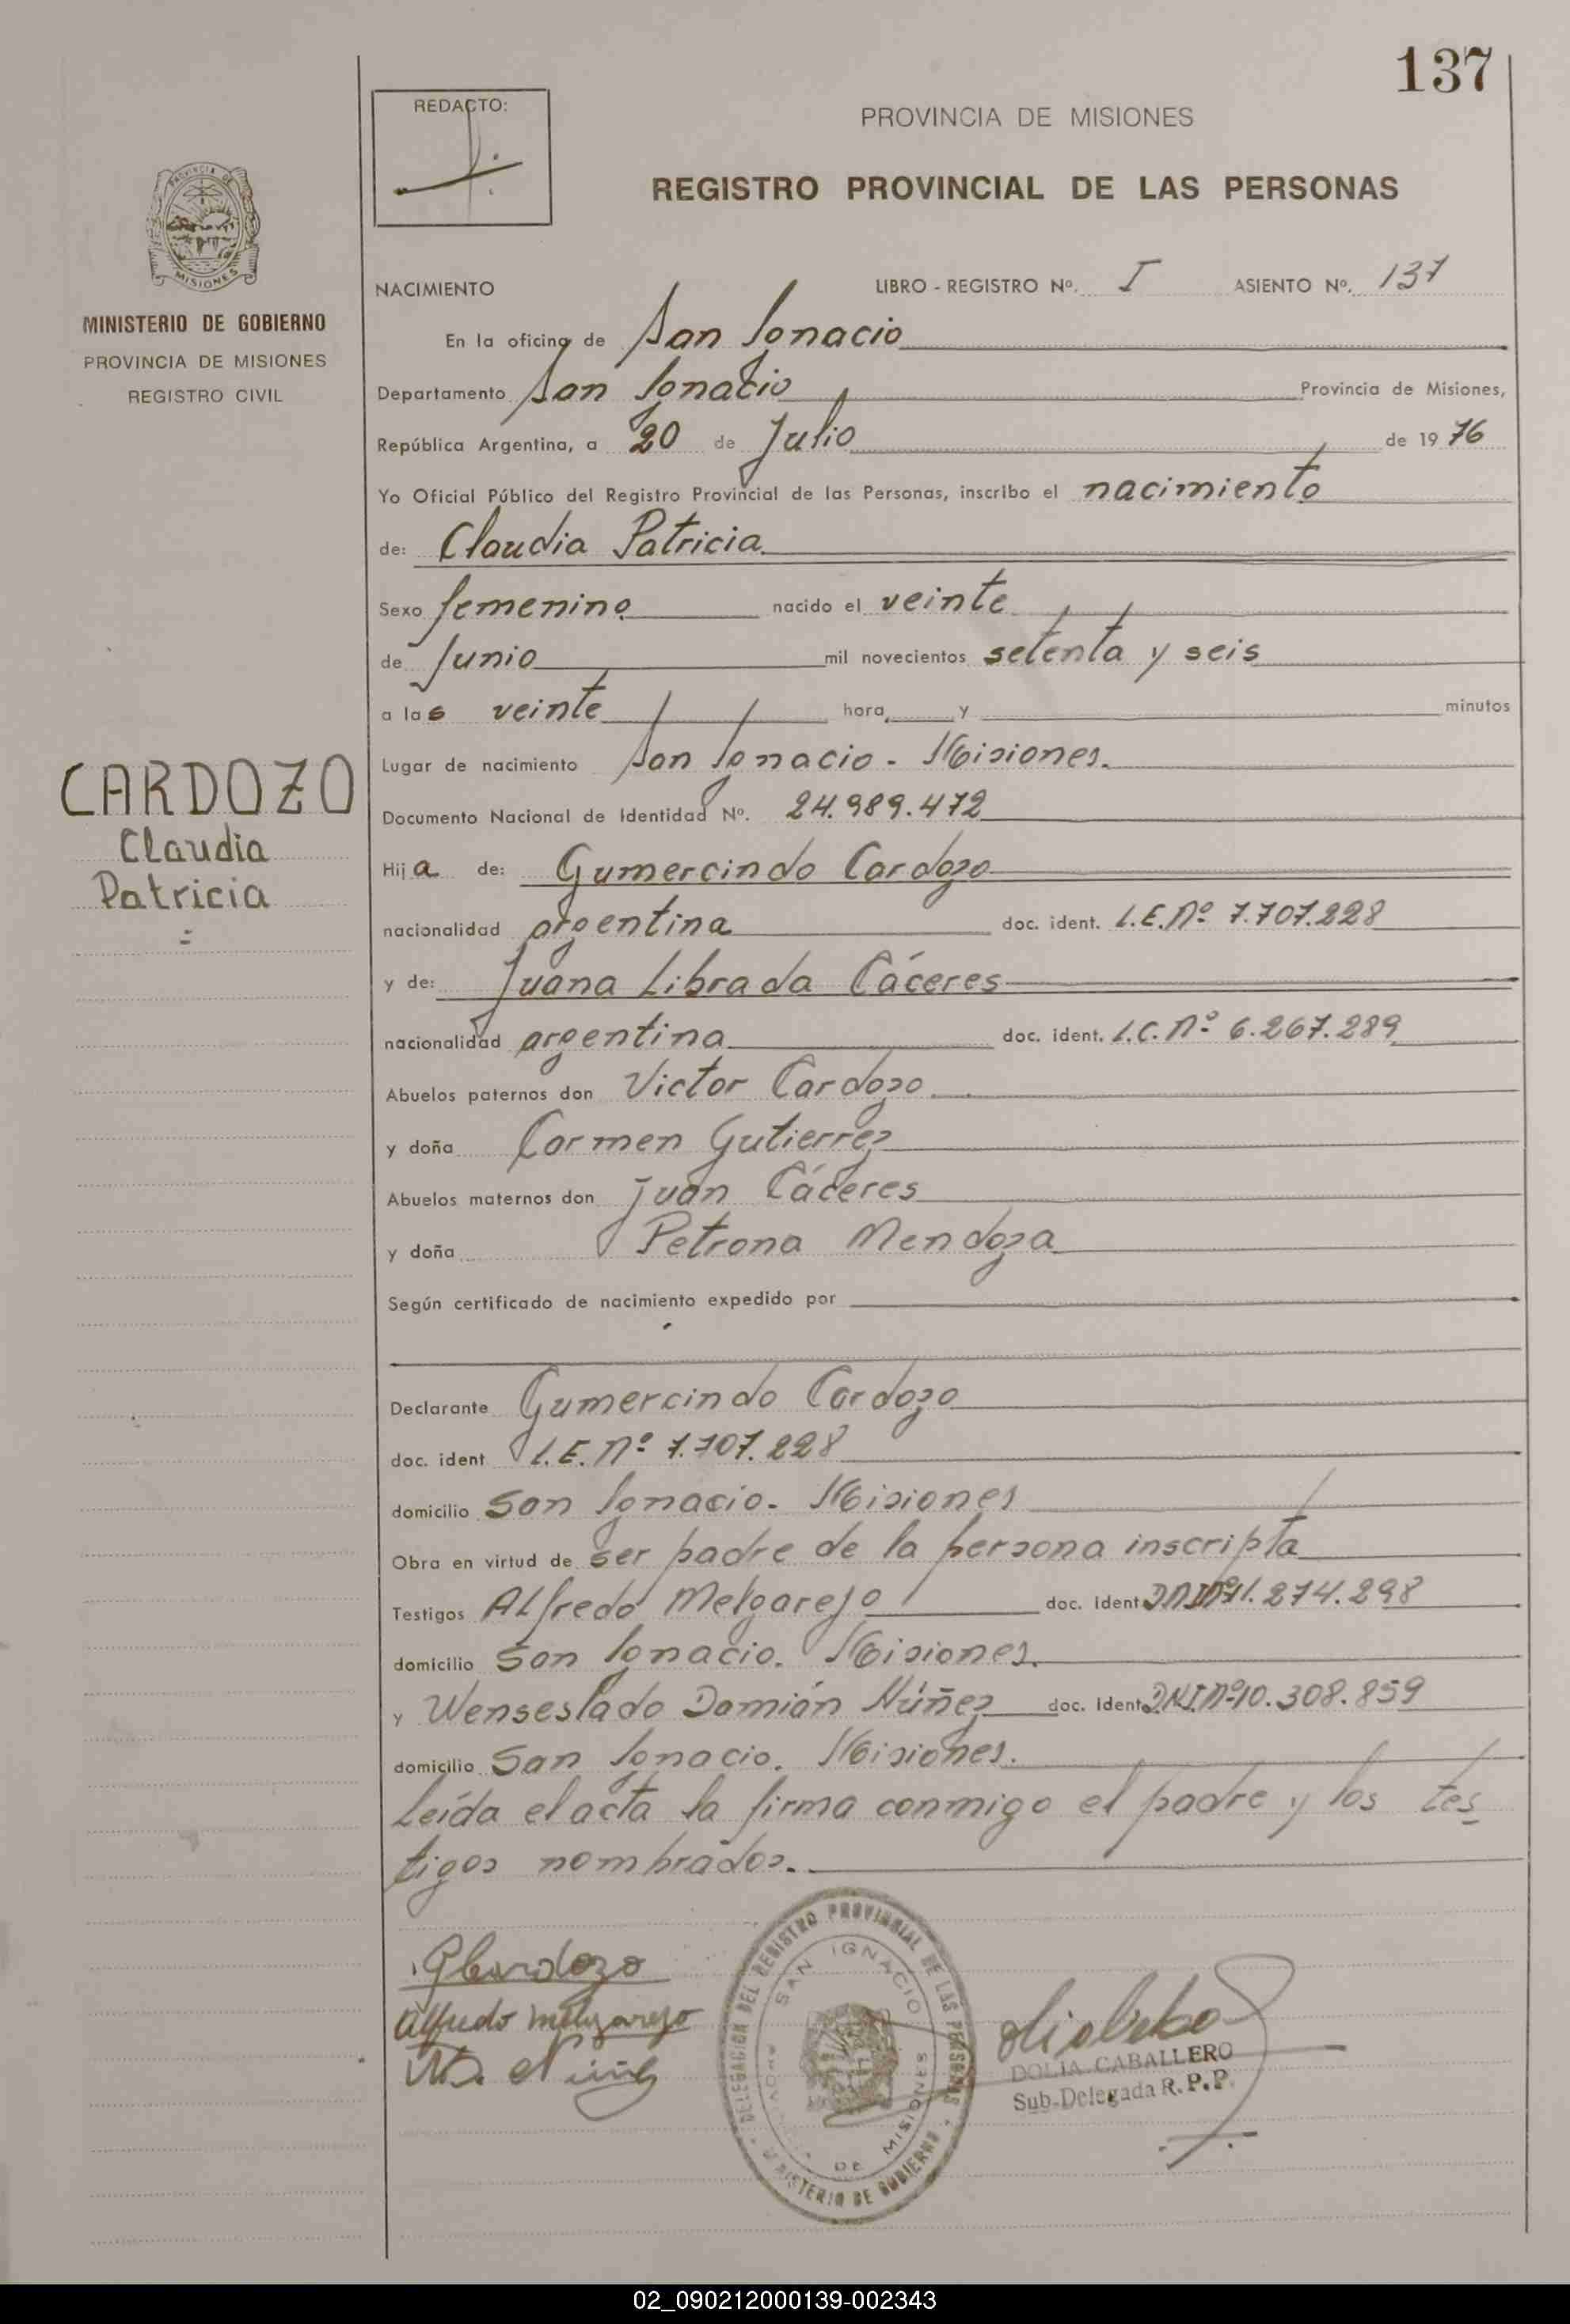 137
REDACTO:
PROVINCIA DE MISIONES
REGISTRO PROVINCIAL DE LAS PERSONAS
PROVINCIA DE
MISIONES
MINISTERIO DE GOBIERNO
PROVINCIA DE MISIONES
REGISTRO CIVIL
NACIMIENTO LIBRO - REGISTRO Nº. I ASIENTO Nº. 137
En la oficina de San Ignacio
Departamento San Ignacio Provincia de Misiones,
República Argentina, a 20 de Julio de 1976
Yo Oficial Público del Registro Provincial de las Personas, inscribo el nacimiento
de: Claudia Patricia
Sexo femenino nacido el veinte
de Junio mil novecientos setenta y seis
a las veinte hora y minutos
Lugar de nacimiento San Ignacio - Misiones.
CARDOZO
Claudia
Patricia
Documento Nacional de Identidad Nº. 24.989.472
Hija de: Gumercindo Cardozo
nacionalidad argentina doc. ident. L.E.Nº 7.707.228
y de: Juana Librada Cáceres
nacionalidad argentina doc. ident. L.C.Nº 6.267.289
Abuelos paternos don Victor Cardozo
y doña Carmen Gutierrez
Abuelos maternos don Juan Cáceres
y doña Petrona Mendoza
Según certificado de nacimiento expedido por
Declarante Gumercindo Cardozo
doc. ident L.E.Nº 7.707.228
domicilio San Ignacio. Misiones
Obra en virtud de ser padre de la persona inscripta
Testigos Alfredo Melgarejo doc. Ident DNINº11.274.298
domicilio San Ignacio. Misiones.
y Wenseslado Damián Núñez doc. Ident D.N.I.Nº10.308.859
domicilio San Ignacio. Misiones.
Leída el acta la firma conmigo el padre y los tes
tigos nombrados.
GCardozo
Alfredo Melgarejo
W.D. Núñez
DELEGACION DEL REGISTRO PROVINCIAL DE LAS PERSONAS
SAN IGNACIO
DE MISIONES
MINISTERIO DE GOBIERNO
DOLIA CABALLERO
Sub-Delegada R.P.P.
02_090212000139-002343